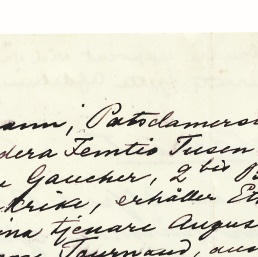 ann, Potsdamers
dera Femtio Tusen
Gaucher, 2 bis
krike, erhåller
tjenare Augus
Tournaud,